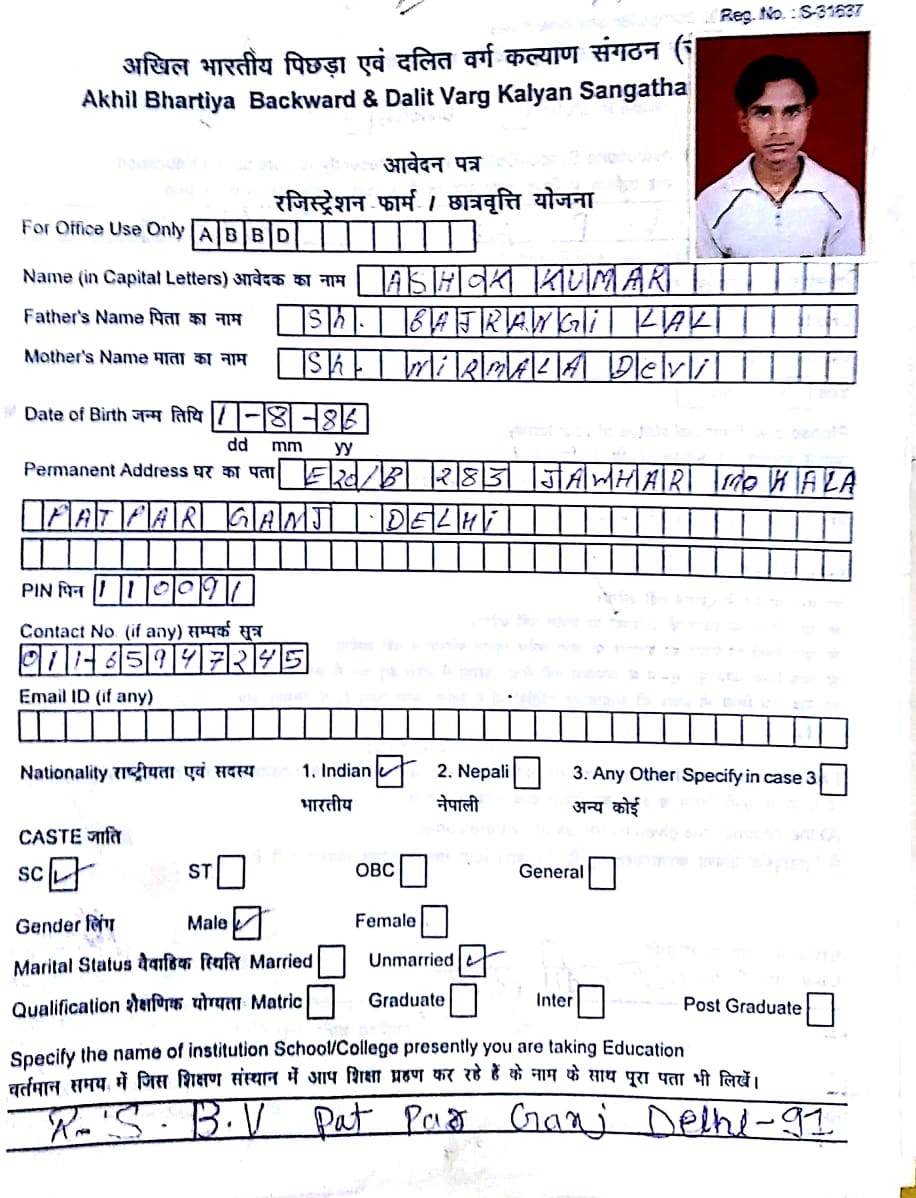 Reg. No. : S-31637
अखिल भारतीय पिछड़ा एवं दलित वर्ग कल्याण संगठन (
Akhil Bhartiya Backward & Dalit Varg Kalyan Sangatha
आवेदन पत्र
रजिस्ट्रेशन फार्म / छात्रवृत्ति योजना
For Office Use Only ABBD
Name (in Capital Letters) आवेदक का नाम ASHOK KUMAR
Father's Name पिता का नाम Sh. BAJRANGi LAL
Mother's Name माता का नाम Sh. NiRMALA Devi
Date of Birth जन्म तिथि 1-8-86
dd mm yy
Permanent Address घर का पता E20/B 283 JAWHAR MOHALA
PATPAR GANJ DELHi
PIN पिन 110091
Contact No. (if any) सम्पर्क सूत्र
011-65947245
Email ID (if any)
Nationality राष्ट्रीयता एवं सदस्य 1. Indian 2. Nepali 3. Any Other Specify in case 3
भारतीय नेपाली अन्य कोई
CASTE जाति
SC ST OBC General
Gender लिंग Male Female
Marital Status वैवाहिक स्थिति Married Unmarried
Qualification शैक्षणिक योग्यता Matric Graduate Inter Post Graduate
Specify the name of institution School/College presently you are taking Education
वर्तमान समय में जिस शिक्षण संस्थान में आप शिक्षा ग्रहण कर रहे हैं के नाम के साथ पूरा पता भी लिखें।
R.S.B.V Pat Par Ganj Delhi-91